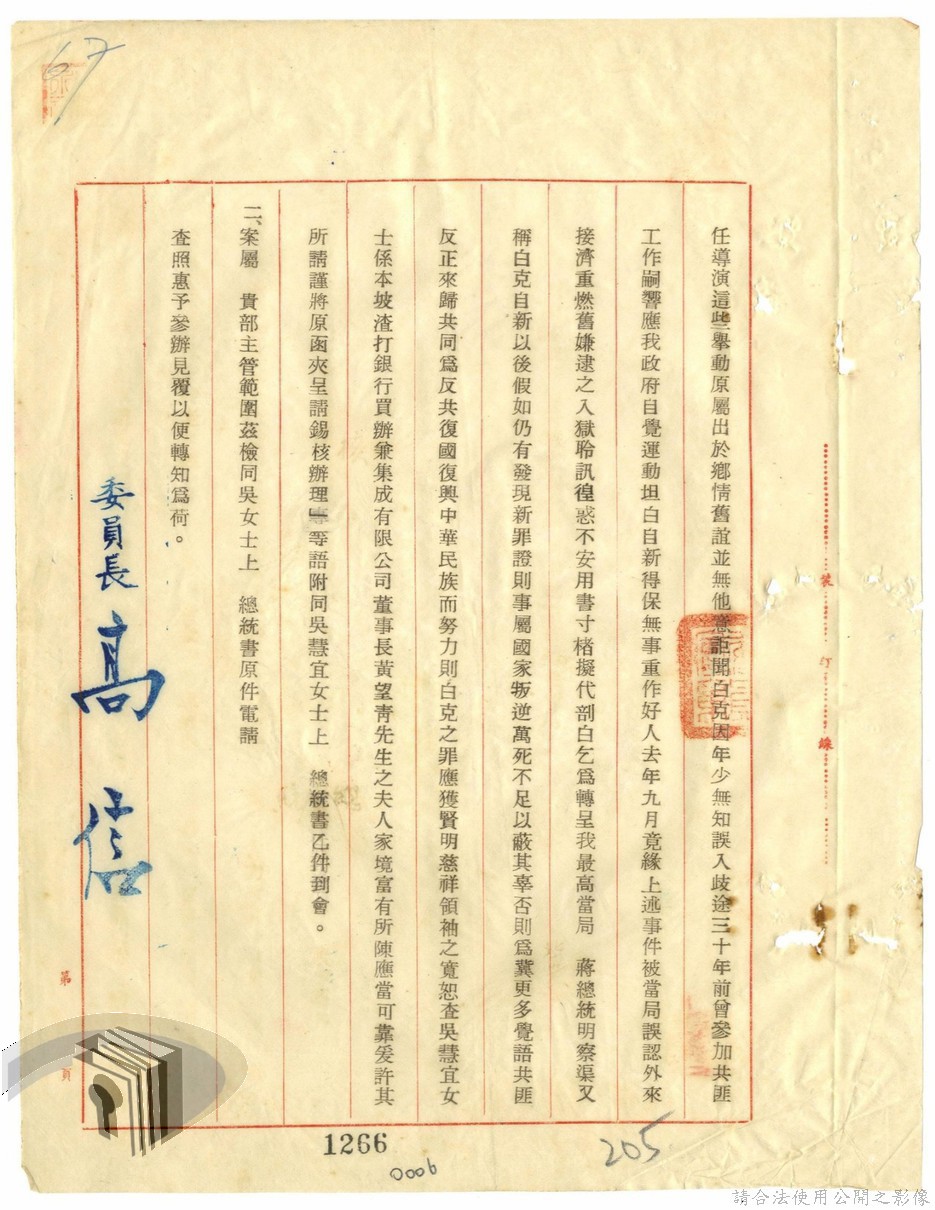 67
任導演這些舉動原屬出於鄉情舊誼並無他意詎聞白克因年少無知誤入歧途三十年前曾參加共匪
工作嗣響應我政府自覺運動坦白自新得保無事重作好人去年九月竟緣上述事件被當局誤認外來
接濟重燃舊嫌逮之入獄聆訊徨惑不安用書寸楮擬代剖白乞爲轉呈我最高當局　蔣總統明察渠又
稱白克自新以後假如仍有發現新罪證則事屬國家叛逆萬死不足以蔽其辜否則爲冀更多覺語共匪
反正來歸共同爲反共復國復興中華民族而努力則白克之罪應獲賢明慈祥領袖之寬恕查吳慧宜女
士係本坡渣打銀行買辦兼集成有限公司董事長黃望青先生之夫人家境富有所陳應當可靠爰許其
所請謹將原函夾呈請錫核辦理」等語附同吳慧宜女士上　總統書乙件到會。
二、案屬　貴部主管範圍茲檢同吳女士上　總統書原件電請
查照惠予參辦見覆以便轉知爲荷。
委員長高信
裝
訂
線
第　頁
1266
0006
205
請合法使用公開之影像